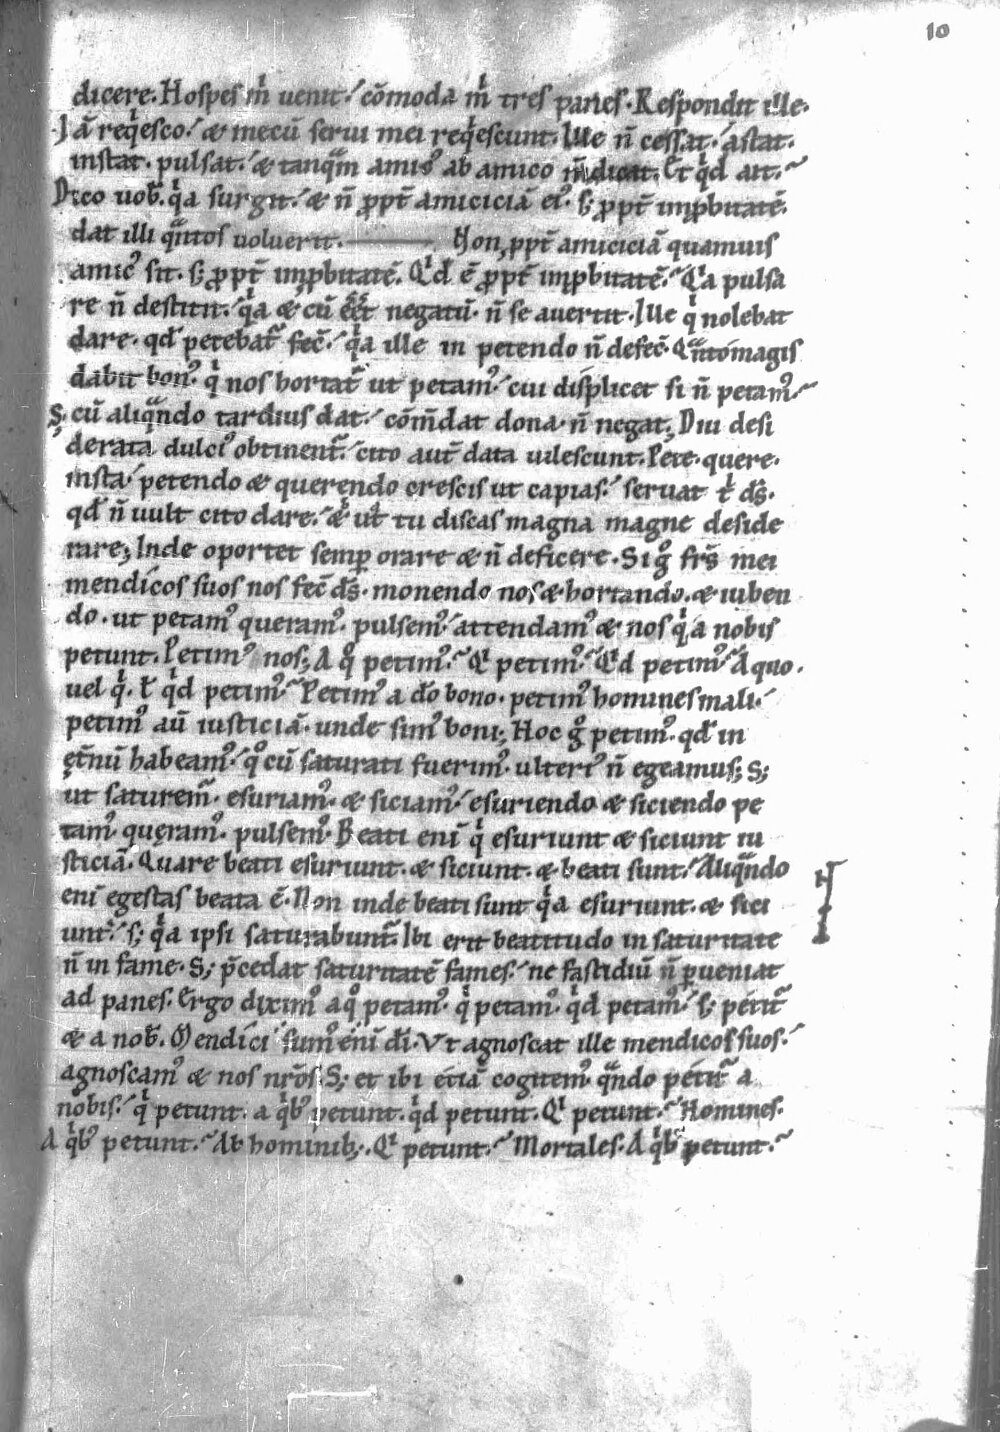 10
dicere. Hospes m̍ uenit.᷄ cōmoda m̍ tres panes. Respondit ille.
Iā req̍esco.᷄ & mecū serui mei req̍escunt. Ille n̄ cessat.᷄ astat.
instat. pulsat.᷄ & tanqᷓm amicꝰ ab amico m̄dicat. Et q̍d ait.᷉
Dico uob̄. q̍a surgit.᷄ & n̄ ꝓpt̄ amiciciā eiꝰ. s; ꝓpt̄ imꝓbitatē.
dat illi qᷓntos uoluerit. Non ꝓpt̄ amiciciā quamuis
amicꝰ sit. s; ꝓpt̄ imꝓbitatē. Q̍d ē ꝓpt̄ imꝓbitatē.᷉ Q̍a pulsa
re n̄ destitit.᷄ q̍a & cū eēt negatū. n̄ se auertit. Ille q̍ nolebat
dare. qd̄ petebat᷑ fec̄.᷄ q̍a ille in petendo n̄ defec̄. Qᷓntomagis
dabit bonꝰ. q̍ nos hortat᷑ ut petamꝰ.᷄ cui displicet si n̄ petamꝰ.᷉
S; cū aliqᷓndo tardius dat.᷄ cōm̄dat dona. n̄ negat; Diu desi
derata dulciꝰ obtinent᷑.᷄ cito aut̄ data uilescunt. Pete. quere.
insta.᷄ petendo & querendo crescis ut capias.᷄ seruat t̍ ds̄.
qd̄ n̄ uult cito dare.᷄ & ut tu discas magna magne deside
rare; Inde oportet semꝑ orare & n̄ deficere. Si gͦ frs̄ mei
mendicos suos nos fec̄ ds̄. monendo nos & hortando. & iuben
do. ut petamꝰ queramꝰ. pulsemꝰ.᷄ attendamꝰ & nos q̍ a nobis
petunt. Petimꝰ nos; A qͦ petimꝰ.᷉ Q̍ petimꝰ.᷉ Q̍d petimꝰ.᷉ A quo.
uel q̍. t̄ q̍d petimꝰ.᷉ Petimꝰ a dō bono. petimꝰ homines mali.᷄
petimꝰ aū iusticiā. unde simꝰ boni; Hoc gͦ petimꝰ. qd̄ in
ęt̄nū habeamꝰ.᷄ qͦ cū saturati fuerimꝰ. ulteriꝰ n̄ egeamus; S;
ut saturem᷑. esuriamꝰ. & siciamꝰ.᷄ esuriendo & siciendo pe
tamꝰ. quęramꝰ. pulsemꝰ. Beati enī q̍ esuriunt & siciunt iu
sticiā. Quare beati esuriunt. & siciunt. & beati sunt.᷉ Aliqᷓndo
enī egestas beata ē. Non inde beati sunt q̍a esuriunt. & sici
unt.᷄ s; q̍a ipsi saturabunt᷑. Ibi erit beatitudo in saturitate
n̄ in fame. S; p̄cedat saturitatē fames.᷄ ne fastidiū n̄ ꝑueniat
ad panes. Ergo diximꝰ a qͦ petamꝰ. q̍ petamꝰ. q̍d petamꝰ.᷄ s; petit᷑
& a nob̄. Mendici sumꝰ enī dī. Vt agnoscat ille mendicos suos.᷄
agnoscamꝰ & nos nr̄os. S; et ibi etiā cogitemꝰ. qᷓndo petit᷑ a
nobis.᷄ q̍ petunt. a q̍bꝰ petunt. q̍d petunt. Q̍ petunt.᷉ Homines.
A q̍bꝰ petunt.᷉ Ab hominib;. Q̍ petunt.᷉ Mortales. A q̍bꝰ petunt.᷉